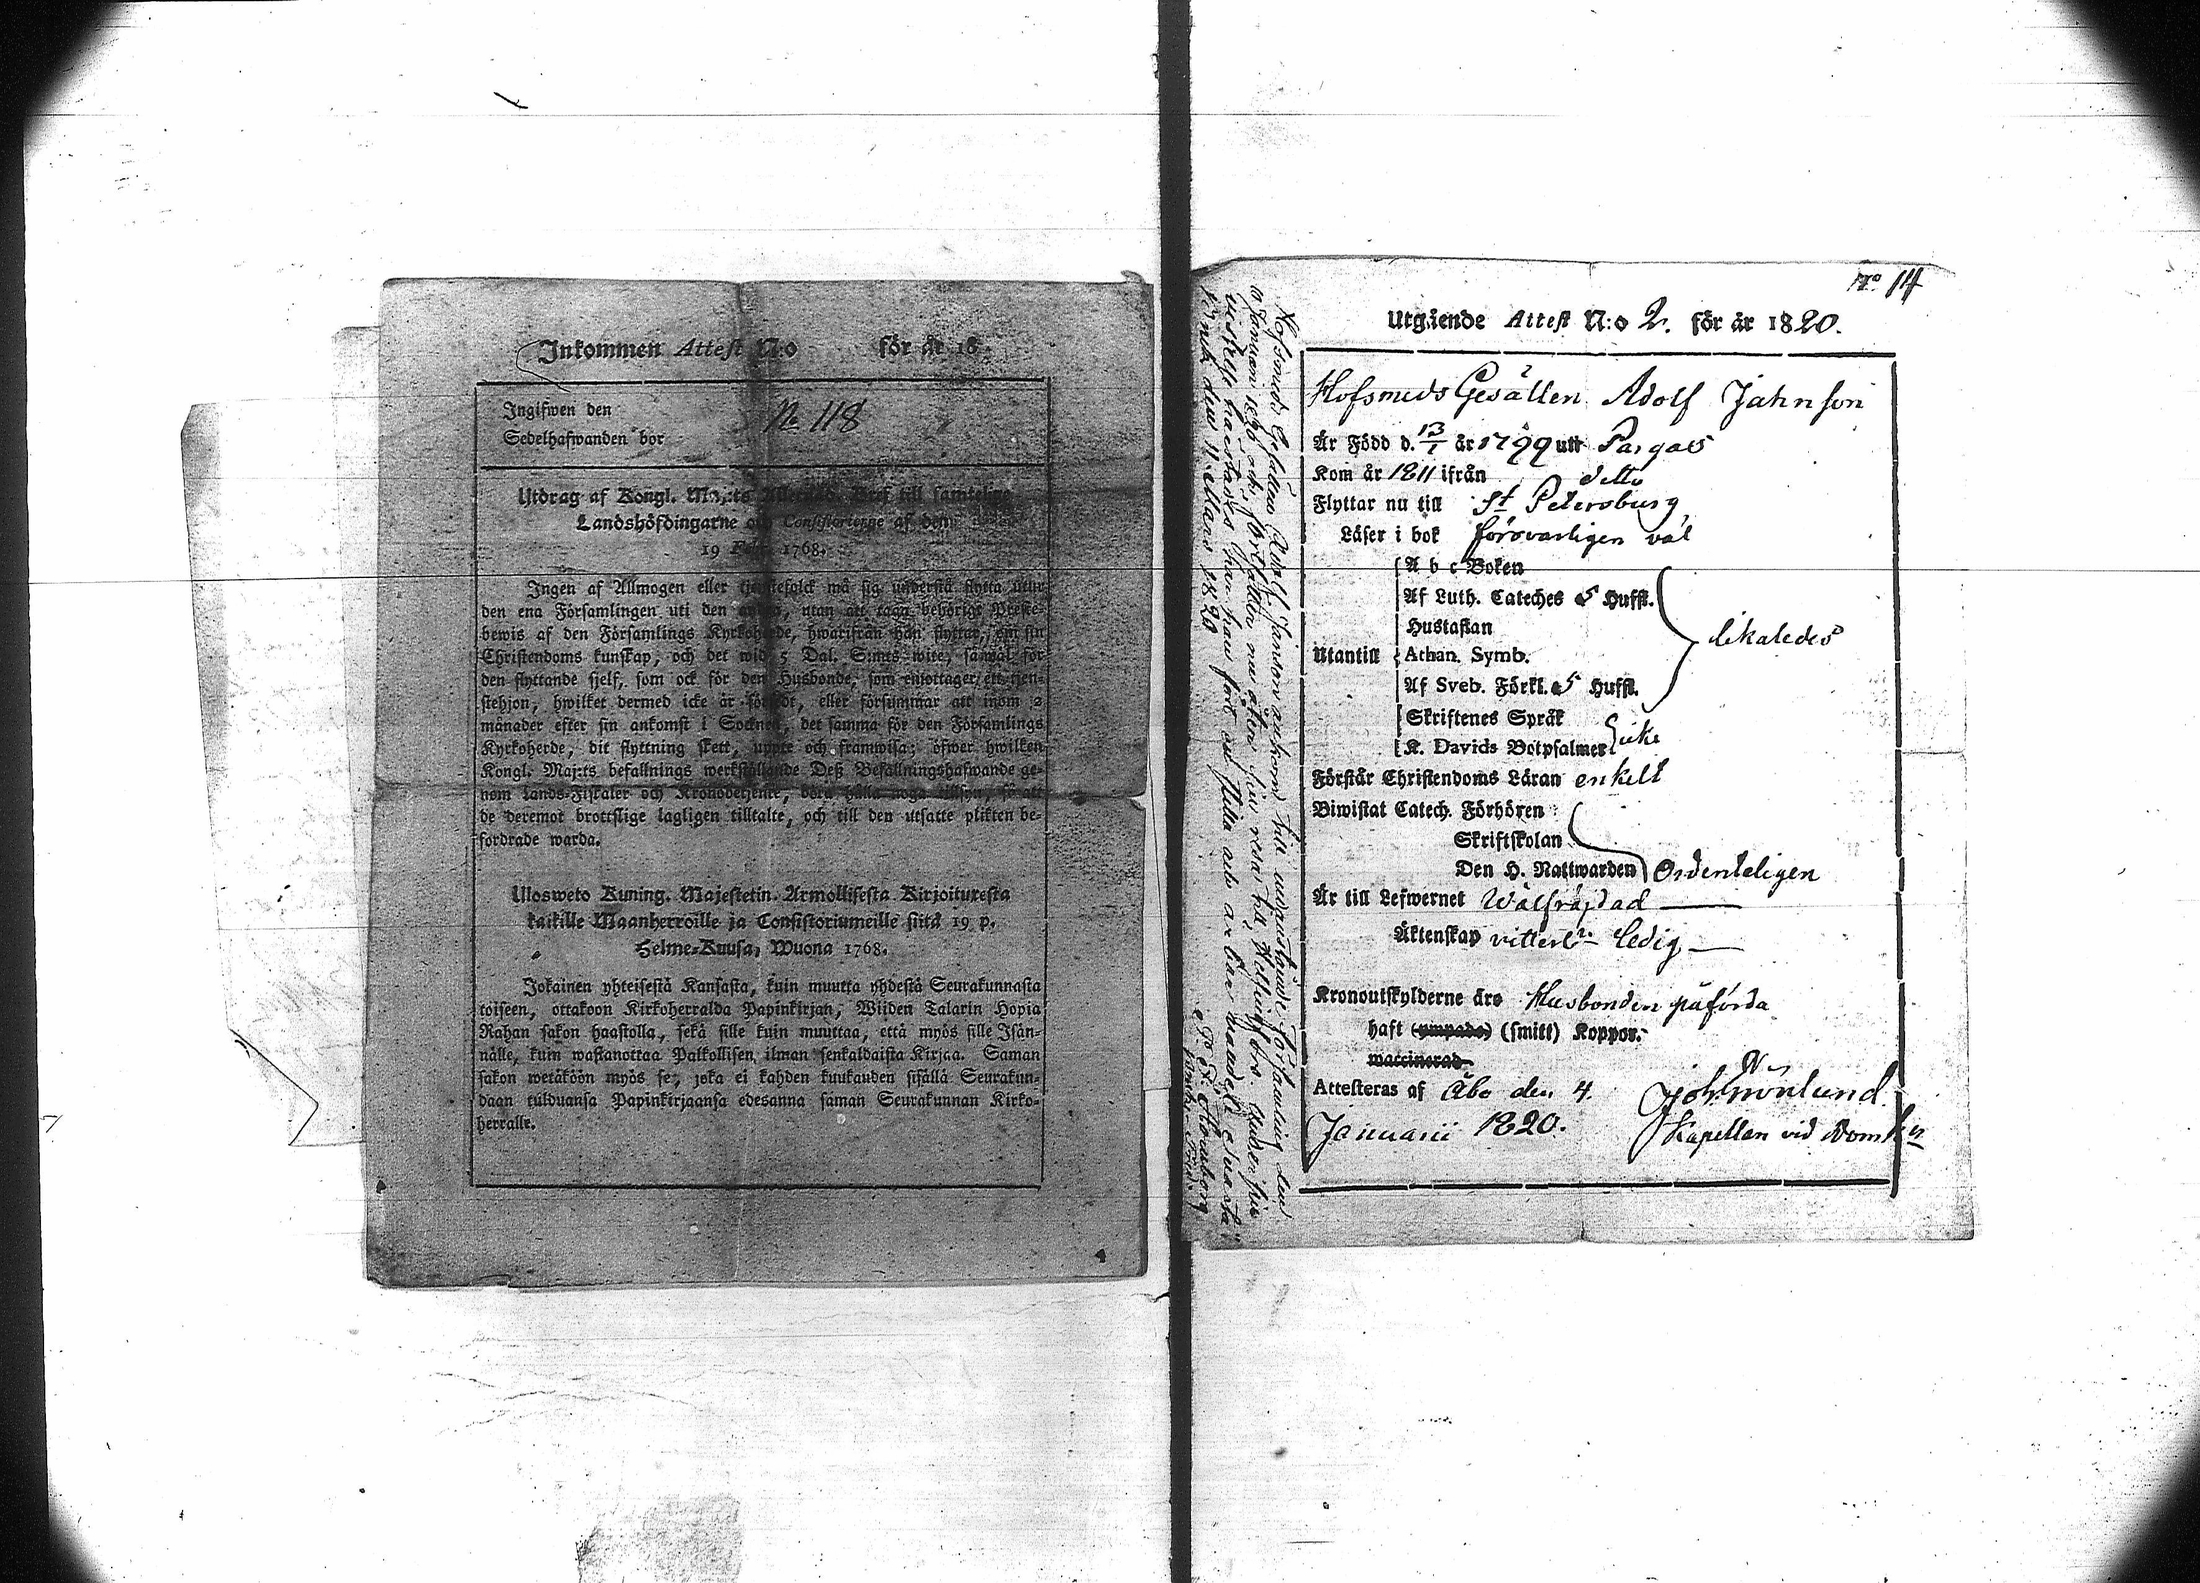 Inkommen Attest N:o för år 18
Ingifwen den
No 118
Sedelhafwanden bor
Utdrag af Kongl. Maj:ts Bref till samtelige
Landshöfdingarne och Consistorierne af den
19 Febr. 1768.
Ingen af Allmogen eller tjenstefolck må sig understå flytta utur
den ena Församlingen uti den andra, utan att taga behörigt Preste-
bewis af den Församlings Kyrkoherde, hwarifrån han flyttar, om sin
Christendoms kunskap, och det wid 5 Dal. S:mts wite, såwäl för
den flyttande sjelf, som ock för den Husbonde, som emottager ett tjen-
stehjon, hwilket dermed icke är försedt, eller försummar att inom 2
månader efter sin ankomst i Socknen, det samma för den Församlings
Kyrkoherde, dit flyttning skett, uppte och framwisa; öfwer hwilken
Kongl. Maj:ts befallnings werkställande Deß Befallningshafwande ge-
nom Lands-Fiskaler och Kronobetjente, böra hålla noga tillsyn, så att
de deremot brottslige lagligen tilltalte, och till den utsatte plikten be-
fordrade warda.
Ulosweto Kuning. Majestetin Armollisesta Kirjoituxesta
kaikille Maanherroille ja Consistoriumeille siitä 19 p.
Helme-Kuusa, Wuona 1768.
Jokainen yhteisestä Kansasta, kuin muutta yhdestä Seurakunnasta
toiseen, ottakoon Kirkoherralda Papinkirjan, Wiiden Talarin Hopia
Rahan sakon haastolla, sekä sille kuin muuttaa, että myös sille Isän-
nälle, kuin wastanottaa Palkollisen ilman senkaldaista Kirjaa. Saman
sakon wetäköön myös se, joka ei kahden kuukauden sisällä Seurakun-
daan tulduansa Papinkirjaansa edesanna saman Seurakunnan Kirko-
herralle.
No 14
Utgående Attest N:o 2. för år 1820.
Hofsmeds Gesällen Adolf Jahnson
Är Född d. 13/1 år 1799 utt Pargas
Kom år 1811 ifrån ditto
Flyttar nu till St Petersburg
Läser i bok försvarligen väl
A b c Boken
Af Luth. Cateches 5 Hufst.
Hustaflan
likaledes
Utantill Athan. Symb.
Af Sveb. Förkl. 5 Hufst.
Skriftenes Språk
icke
K. Davids Botpsalmer
Förstår Christendoms Läran enkelt
Biwistat Catech. Förhören
Skriftskolan
Den H. Nattwarden Ordenteligen
Är till Lefwernet Wälfräjdad
Äktenskap vitterl:n ledig
Kronoutskylderne äro Husbonden påförda
haft (ympade) (smitt) Koppor.
waccinerad
Attesteras af Åbo den 4. Joh. Grönlund
Januarii 1820. Kapellan vid Domk
Hofsmeds Gesällen Adolf Janson ankom till undanstående församling den
Januari 1820 och fortsätter nu åter sin resa till Helsingfors.
den 11 Mars 1820